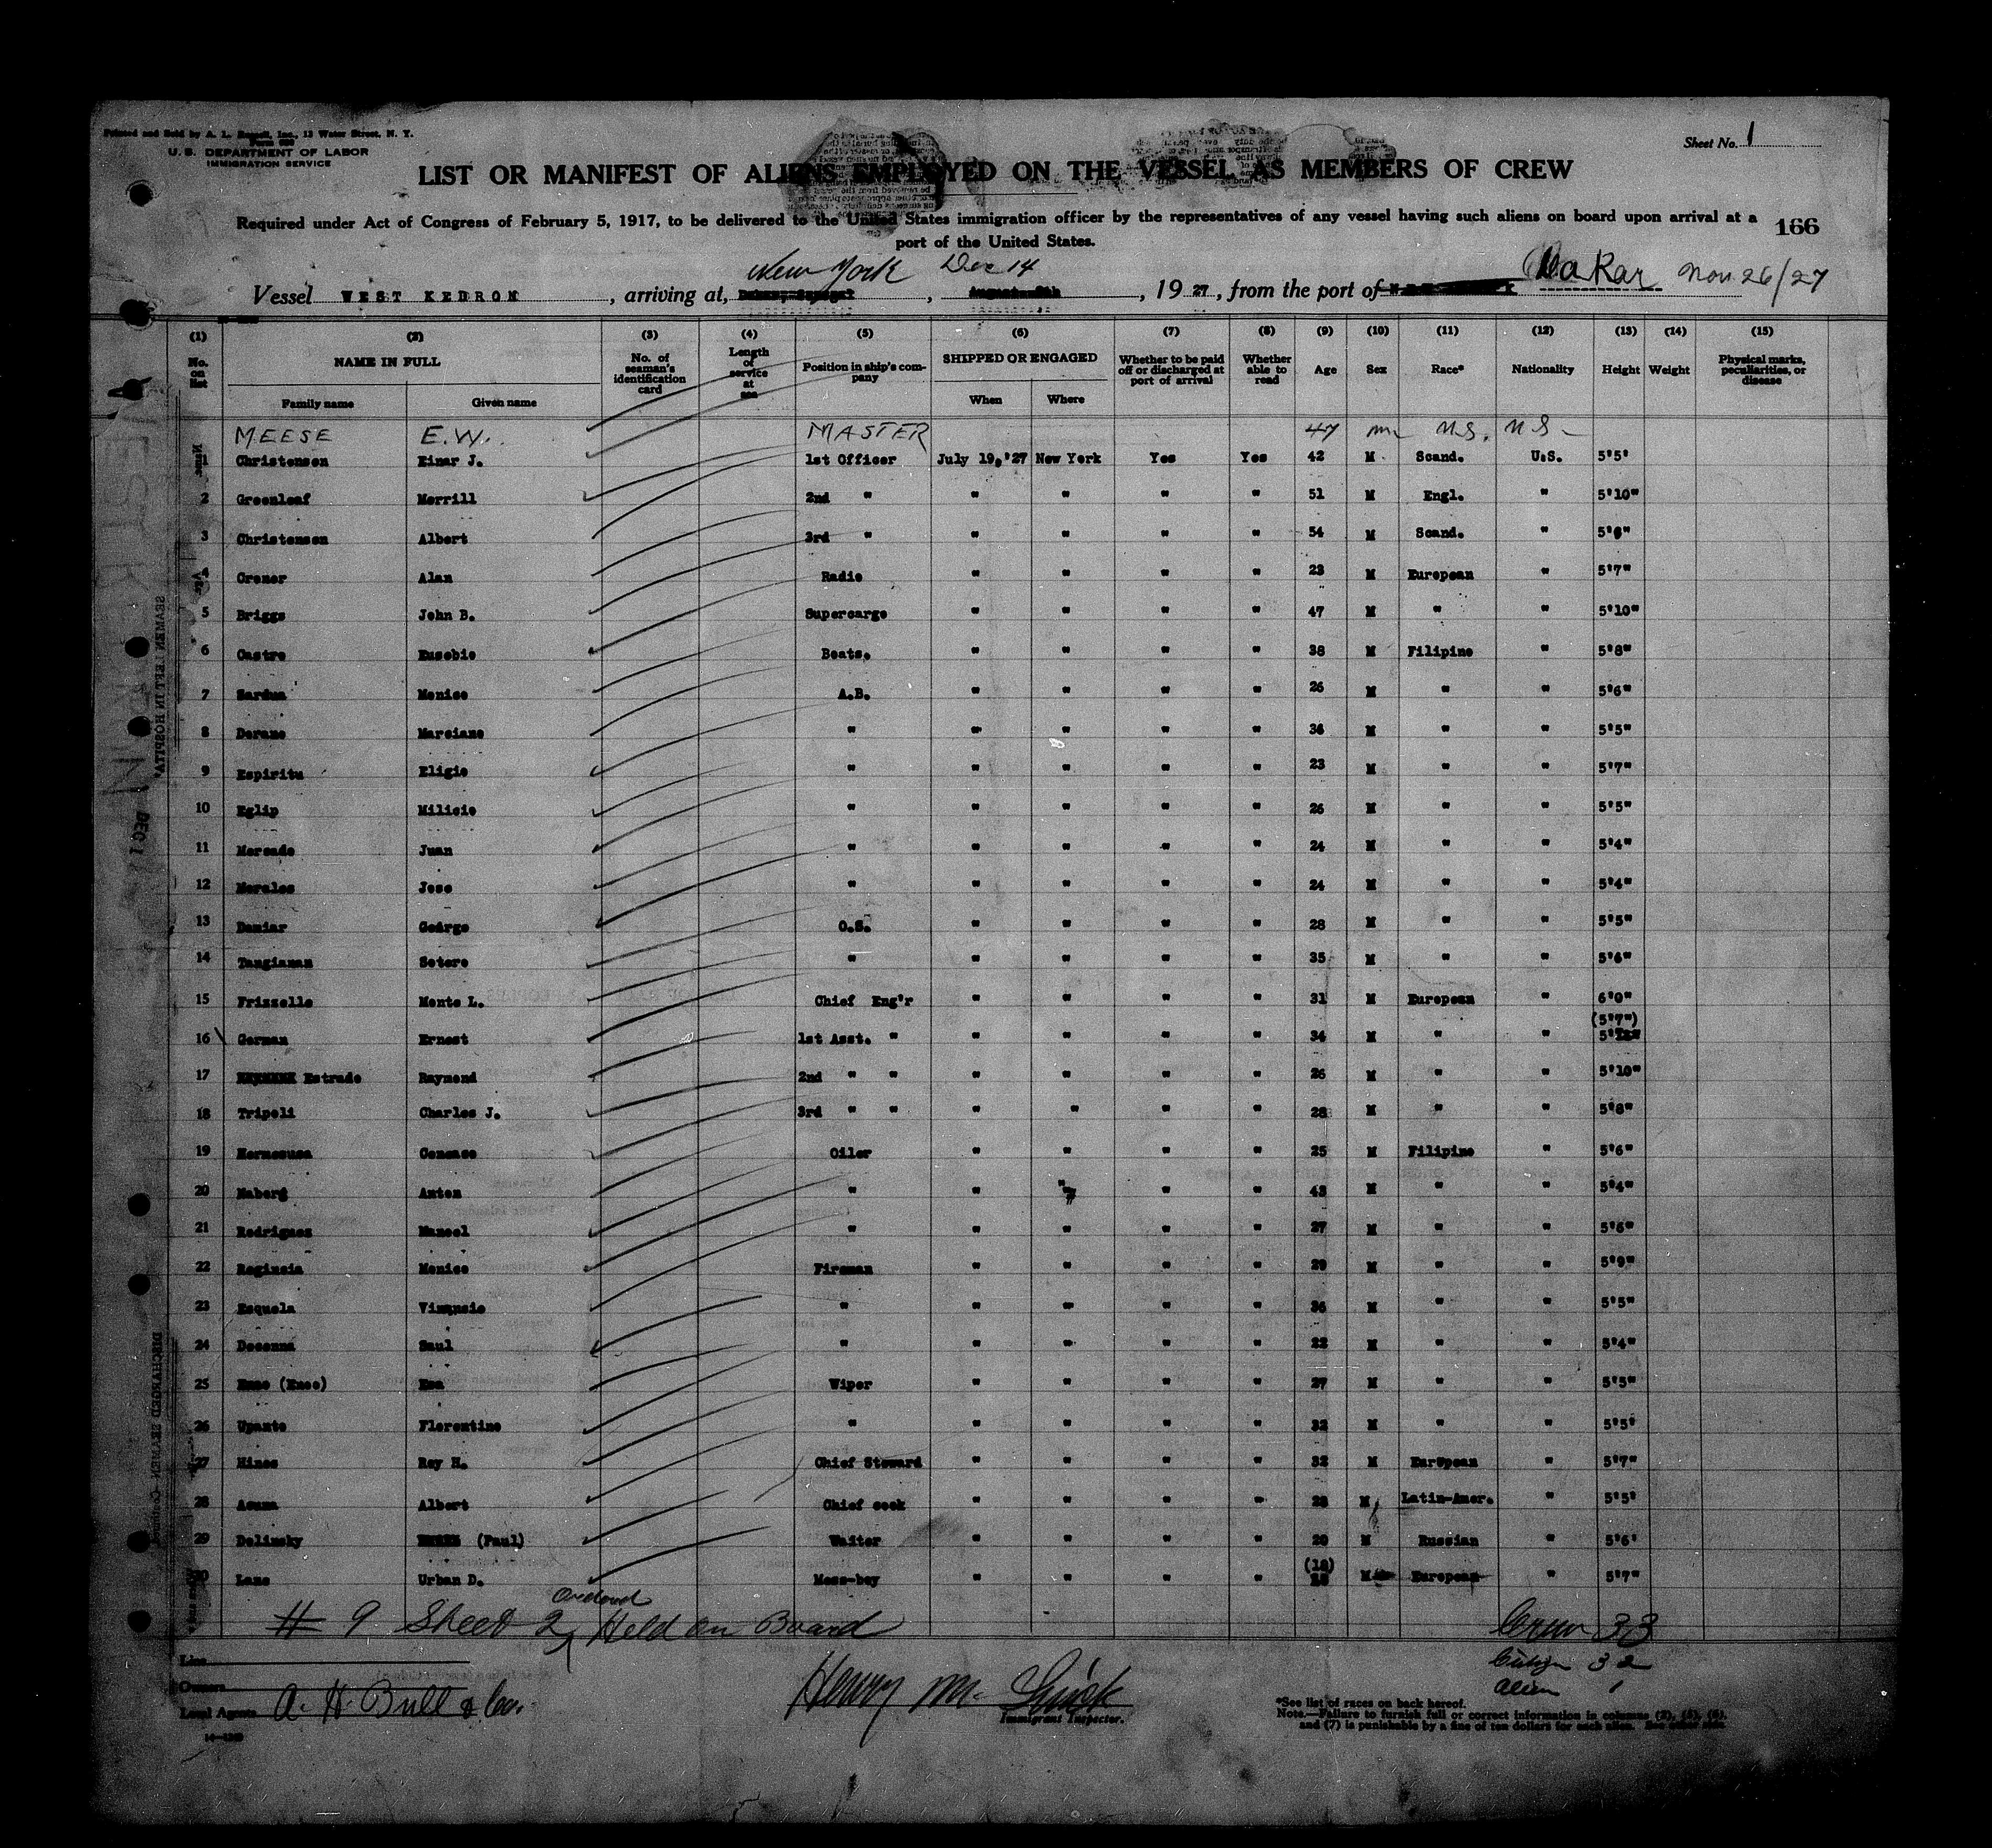 Printed and Sold by A. L. Inc., 12 Water Street, N. Y.
U. S. DEPARTMENT OF LABOR
IMMIGRATION SERVICE
Sheet No. 1
LIST OR MANIFEST OF ALIENS EMPLOYED ON THE VESSEL AS MEMBERS OF CREW
Required under Act of Congress of February 5, 1917, to be delivered to the United States immigration officer by the representatives of any vessel having such aliens on board upon arrival at a
port of the United States.
166
New York Dec 14 Dakar Nov 26/27
Vessel WEST KEDRON, arriving at, , , 19 27, from the port of
(1) (2) (3) (4) (5) (6) (7) (8) (9) (10) (11) (12) (13) (14) (15)
No. on list NAME IN FULL Family name Given name No. of seaman's identification card Length of service at sea Position in ship's company SHIPPED OR ENGAGED When Where Whether to be paid off or discharged at port of arrival Whether able to read Age Sex Race* Nationality Height Weight Physical marks, peculiarities, or disease
MEESE E.W. MASTER 47 m U.S. U.S.
1 Christensen Einar J. 1st Officer July 19,'27 New York Yes Yes 42 M Scand. U.S. 5'5'
2 Greenleaf Merrill 2nd " " " " " 51 M Engl. " 5'10"
3 Christensen Albert 3rd " " " " " 54 M Scand. " 5'8"
4 Cremer Alan Radio " " " " 23 M European " 5'7"
5 Briggs John B. Supercargo " " " " 47 M " " 5'10"
6 Castro Eusebio Boats. " " " " 38 M Filipino " 5'8"
7 Sardua Monico A.B. " " " " 26 M " " 5'6"
8 Dorano Marciano " " " " " 36 M " " 5'5"
9 Espiritu Eligio " " " " " 23 M " " 5'7"
10 Eglip Milicio " " " " " 26 M " " 5'5"
11 Mercado Juan " " " " " 24 M " " 5'4"
12 Morales Jose " " " " " 24 M " " 5'4"
13 Damiar George O.S. " " " " 28 M " " 5'5"
14 Tangianan Sotero " " " " " 35 M " " 5'4"
15 Frizzelle Monte L. Chief Eng'r " " " " 31 M European " 6'0"
(5'7")
16 Gorman Ernest 1st Asst. " " " " " 34 M " "
17 Estrade Raymond 2nd " " " " " " 26 M " " 5'10"
18 Tripoli Charles J. 3rd " " " " " " 28 M " " 5'8"
19 Hermosusa Oiler " " " " 25 M Filipino " 5'6"
20 Naberg Anton " " " " " 43 M " " 5'4"
21 Rodriguez Manuel " " " " " 27 M " " 5'6"
22 Reginsia Monico Fireman " " " " 29 M " " 5'9"
23 Esquela " " " " " 36 M " " 5'5"
24 Decenna Saul " " " " " 22 M " " 5'4"
25 Wiper " " " " 27 M " " 5'5"
26 Upante Florentino " " " " " 32 M " " 5'5'
27 Hines Roy H. Chief Steward " " " " 32 M European " 5'7"
28 Acuna Albert Chief cook " " " " 28 M Latin-Amer. " 5'5'
29 Dolinsky (Paul) Waiter " " " " 20 M Russian " 5'6'
(18)
30 Lane Urban D. Mess-boy " " " " M European " 5'7"
# 9 Sheet 2, Held on Board
Crew 33
Citizen 32
Alien 1
Line
Owners
Local Agents A. H. Bull & Co.
Henry M.
Immigrant Inspector.
*See list of races on back hereof.
Note.—Failure to furnish full or correct information in columns (2), (5), (6),
and (7) is punishable by a fine of ten dollars for each alien. See other side.
SEAMEN LEFT IN HOSPITAL
DISCHARGED SEAMEN